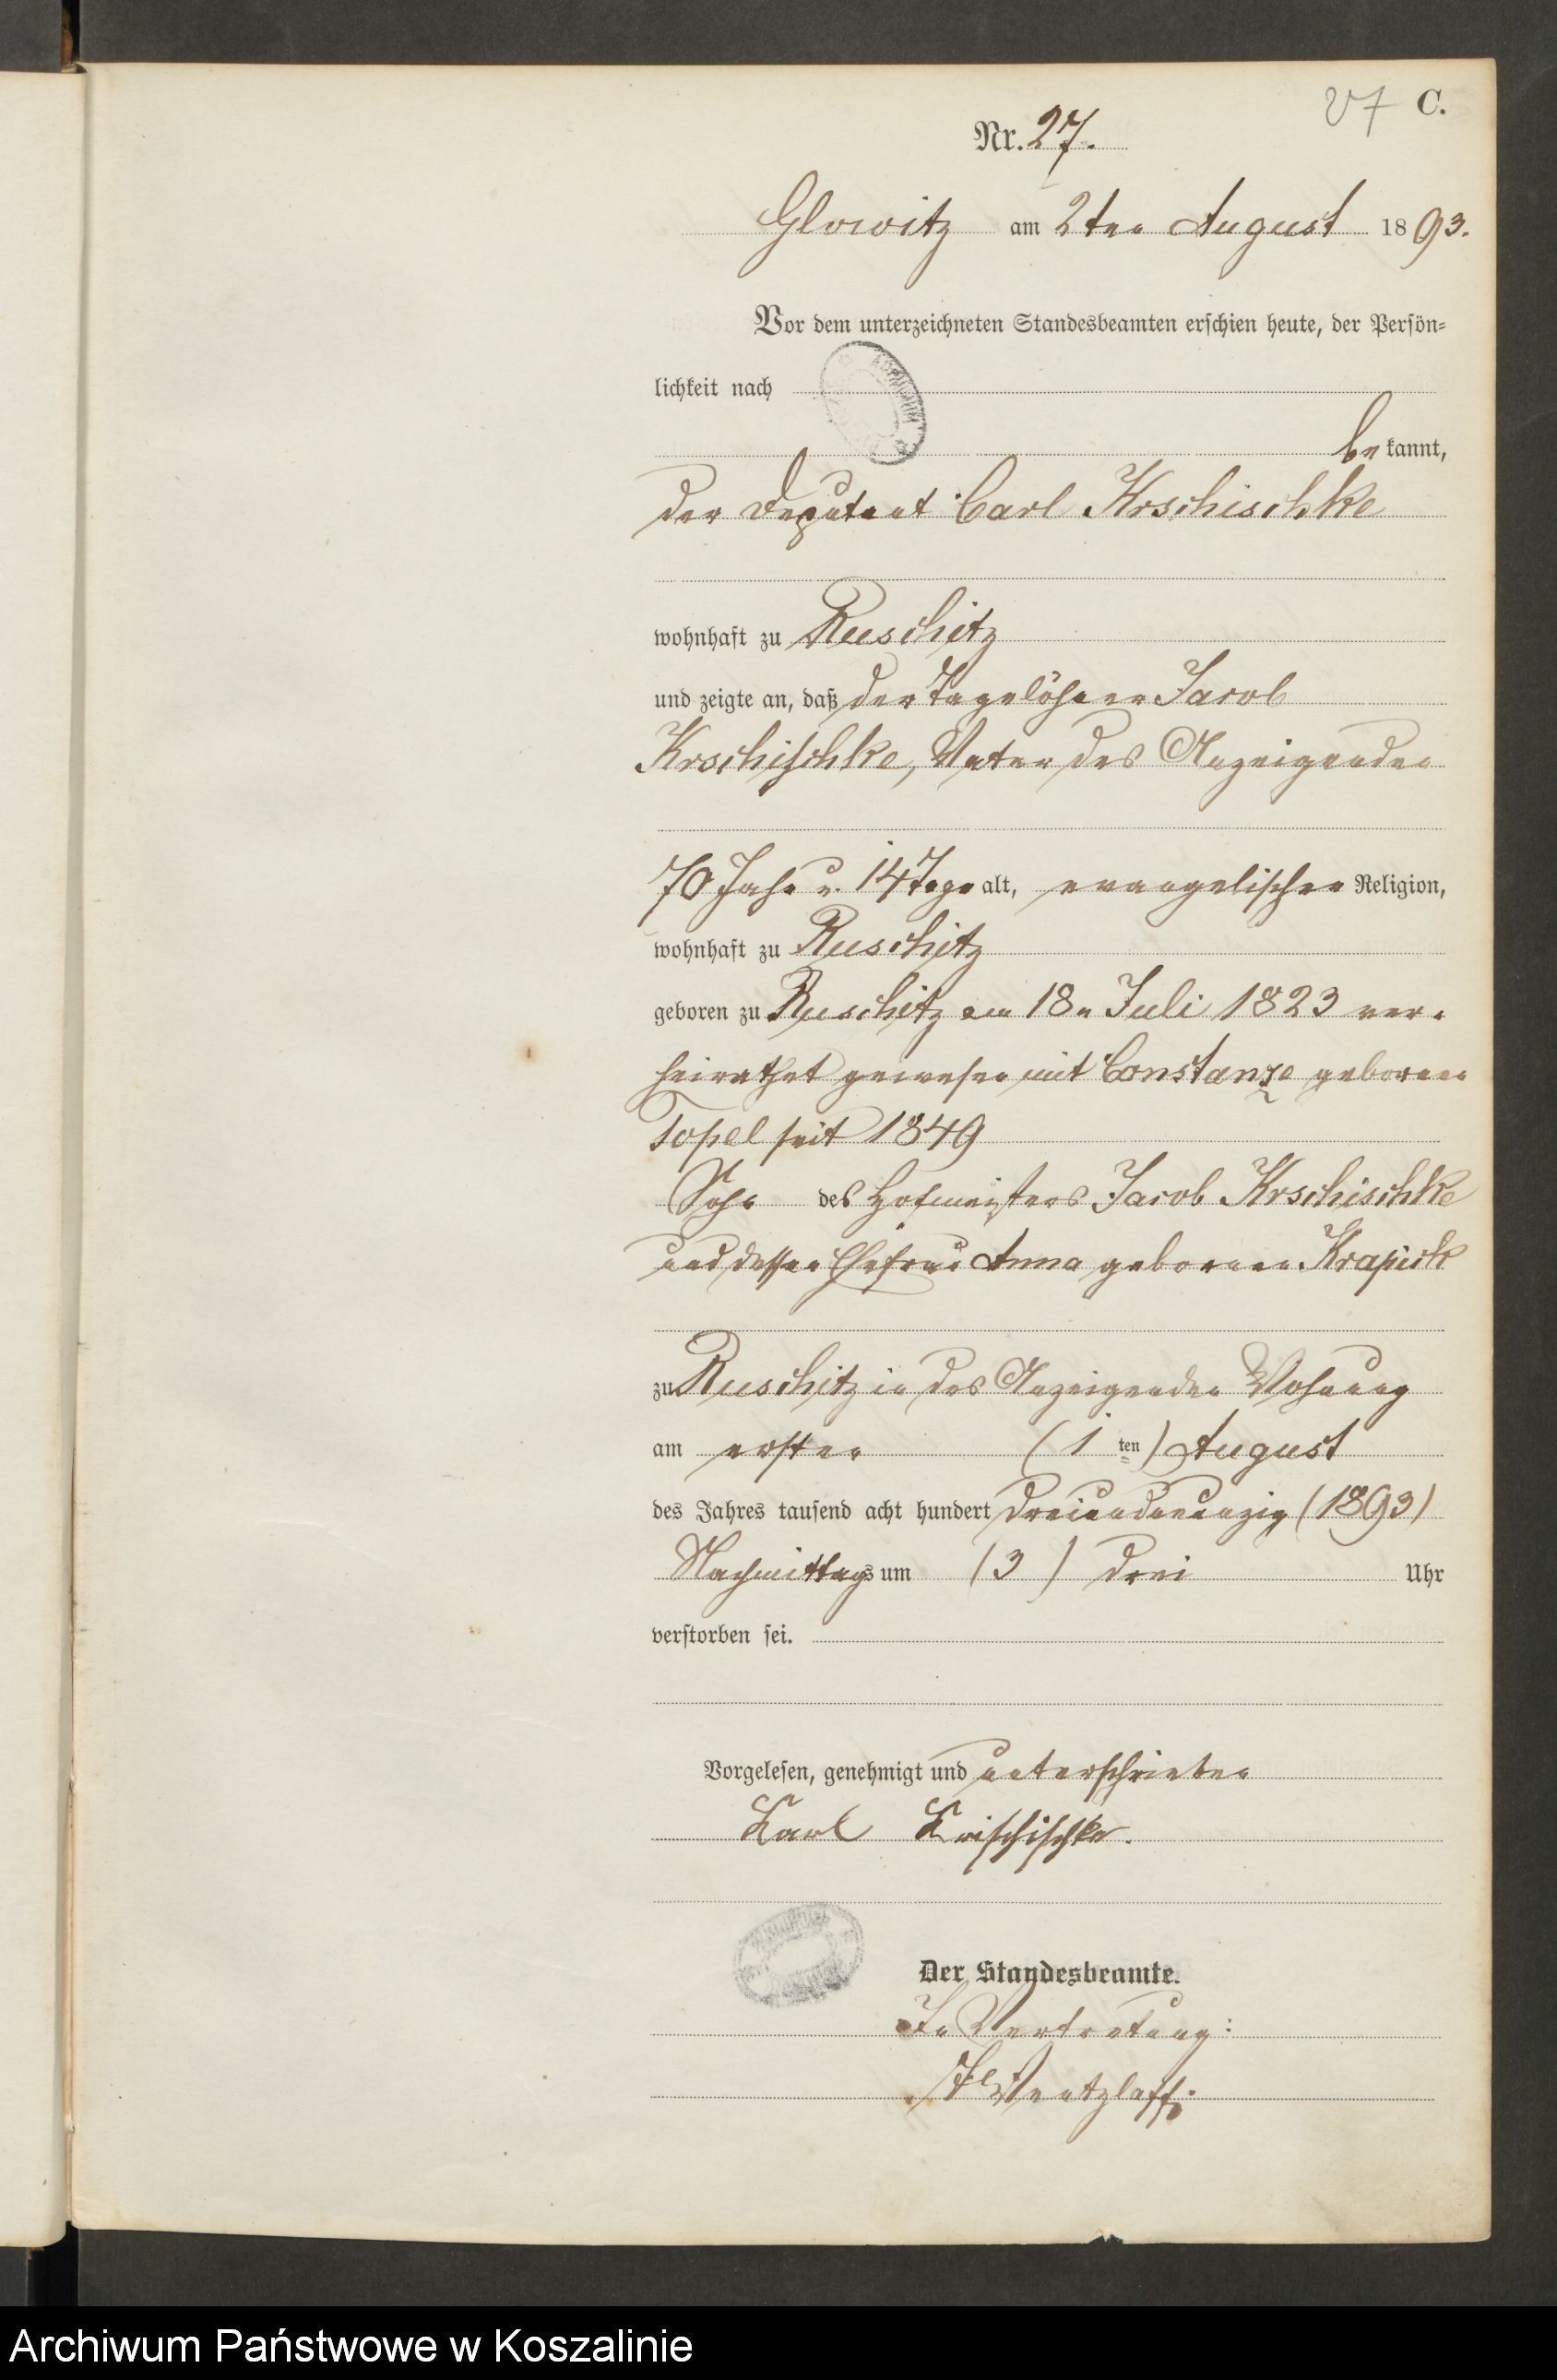 27 C.
Nr. 27.
Glowitz am 2ten August 1893.
Vor dem unterzeichneten Standesbeamten erschien heute, der Persön-
lichkeit nach
bekannt,
der Deputant Carl Krschischke
wohnhaft zu Ruschitz
und zeigte an, daß der Tagelöhner Jacob
Krschischke, Vater des Anzeigenden
70 Jahr u. 14 Tage alt, evangelischer Religion,
wohnhaft zu Ruschitz
geboren zu Ruschitz am 18n Juli 1823 ver-
heirathet gewesen mit Constanze geborenen
Topel seit 1849
Sohn des Hofmeisters Jacob Krschischke
und dessen Ehefrau Anna geborenen Krapick
zu Ruschitz in des Anzeigenden Wohnung
am ersten (1ten) August
des Jahres tausend acht hundert dreiundneunzig (1893)
Nachmittags um (3) drei Uhr
verstorben sei.
Vorgelesen, genehmigt und unterschrieben
Karl Krischischke.
Der Standesbeamte.
In Vertretung:
Wentzlaff.
Archiwum Państwowe w Koszalinie